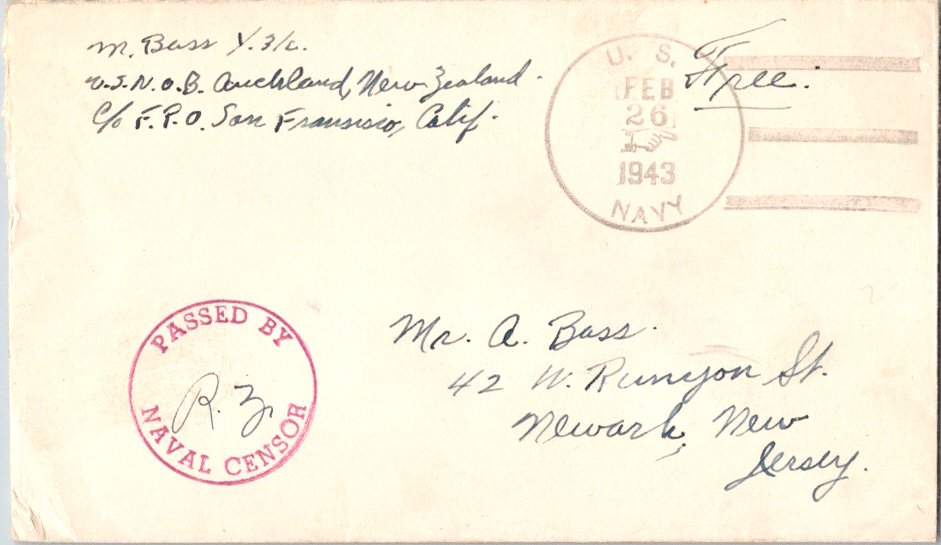 M. Bass Y. 3/c.
U.S.N.O.B. Auckland, New Zealand.
c/o F.P.O. San Fransisco, Calif.
Free.
U. S.
FEB
26
1943
NAVY
PASSED BY
R. Z.
NAVAL CENSOR
Mr. A. Bass.
42 W. Runyon St.
Newark, New
Jersey.